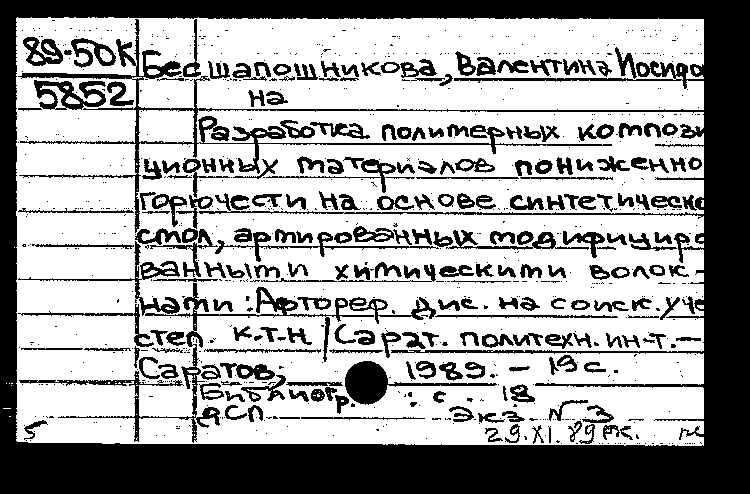 89-50К Бесшапошникова, Валентина Иосифо
5852 на
Разработка полимерных компози
ционных материалов пониженно
горючести на основе синтетическо
смол, армированных модифициро
ванными химическими волок-
нами : Автореф. дис. на соиск. уче
степ. к.т.н / Сарат. политехн. ин-т. —
Саратов, 1989. — 19 с.
Библиогр. : с. 18
ДСП Экз. № 3
5 29.XI.89